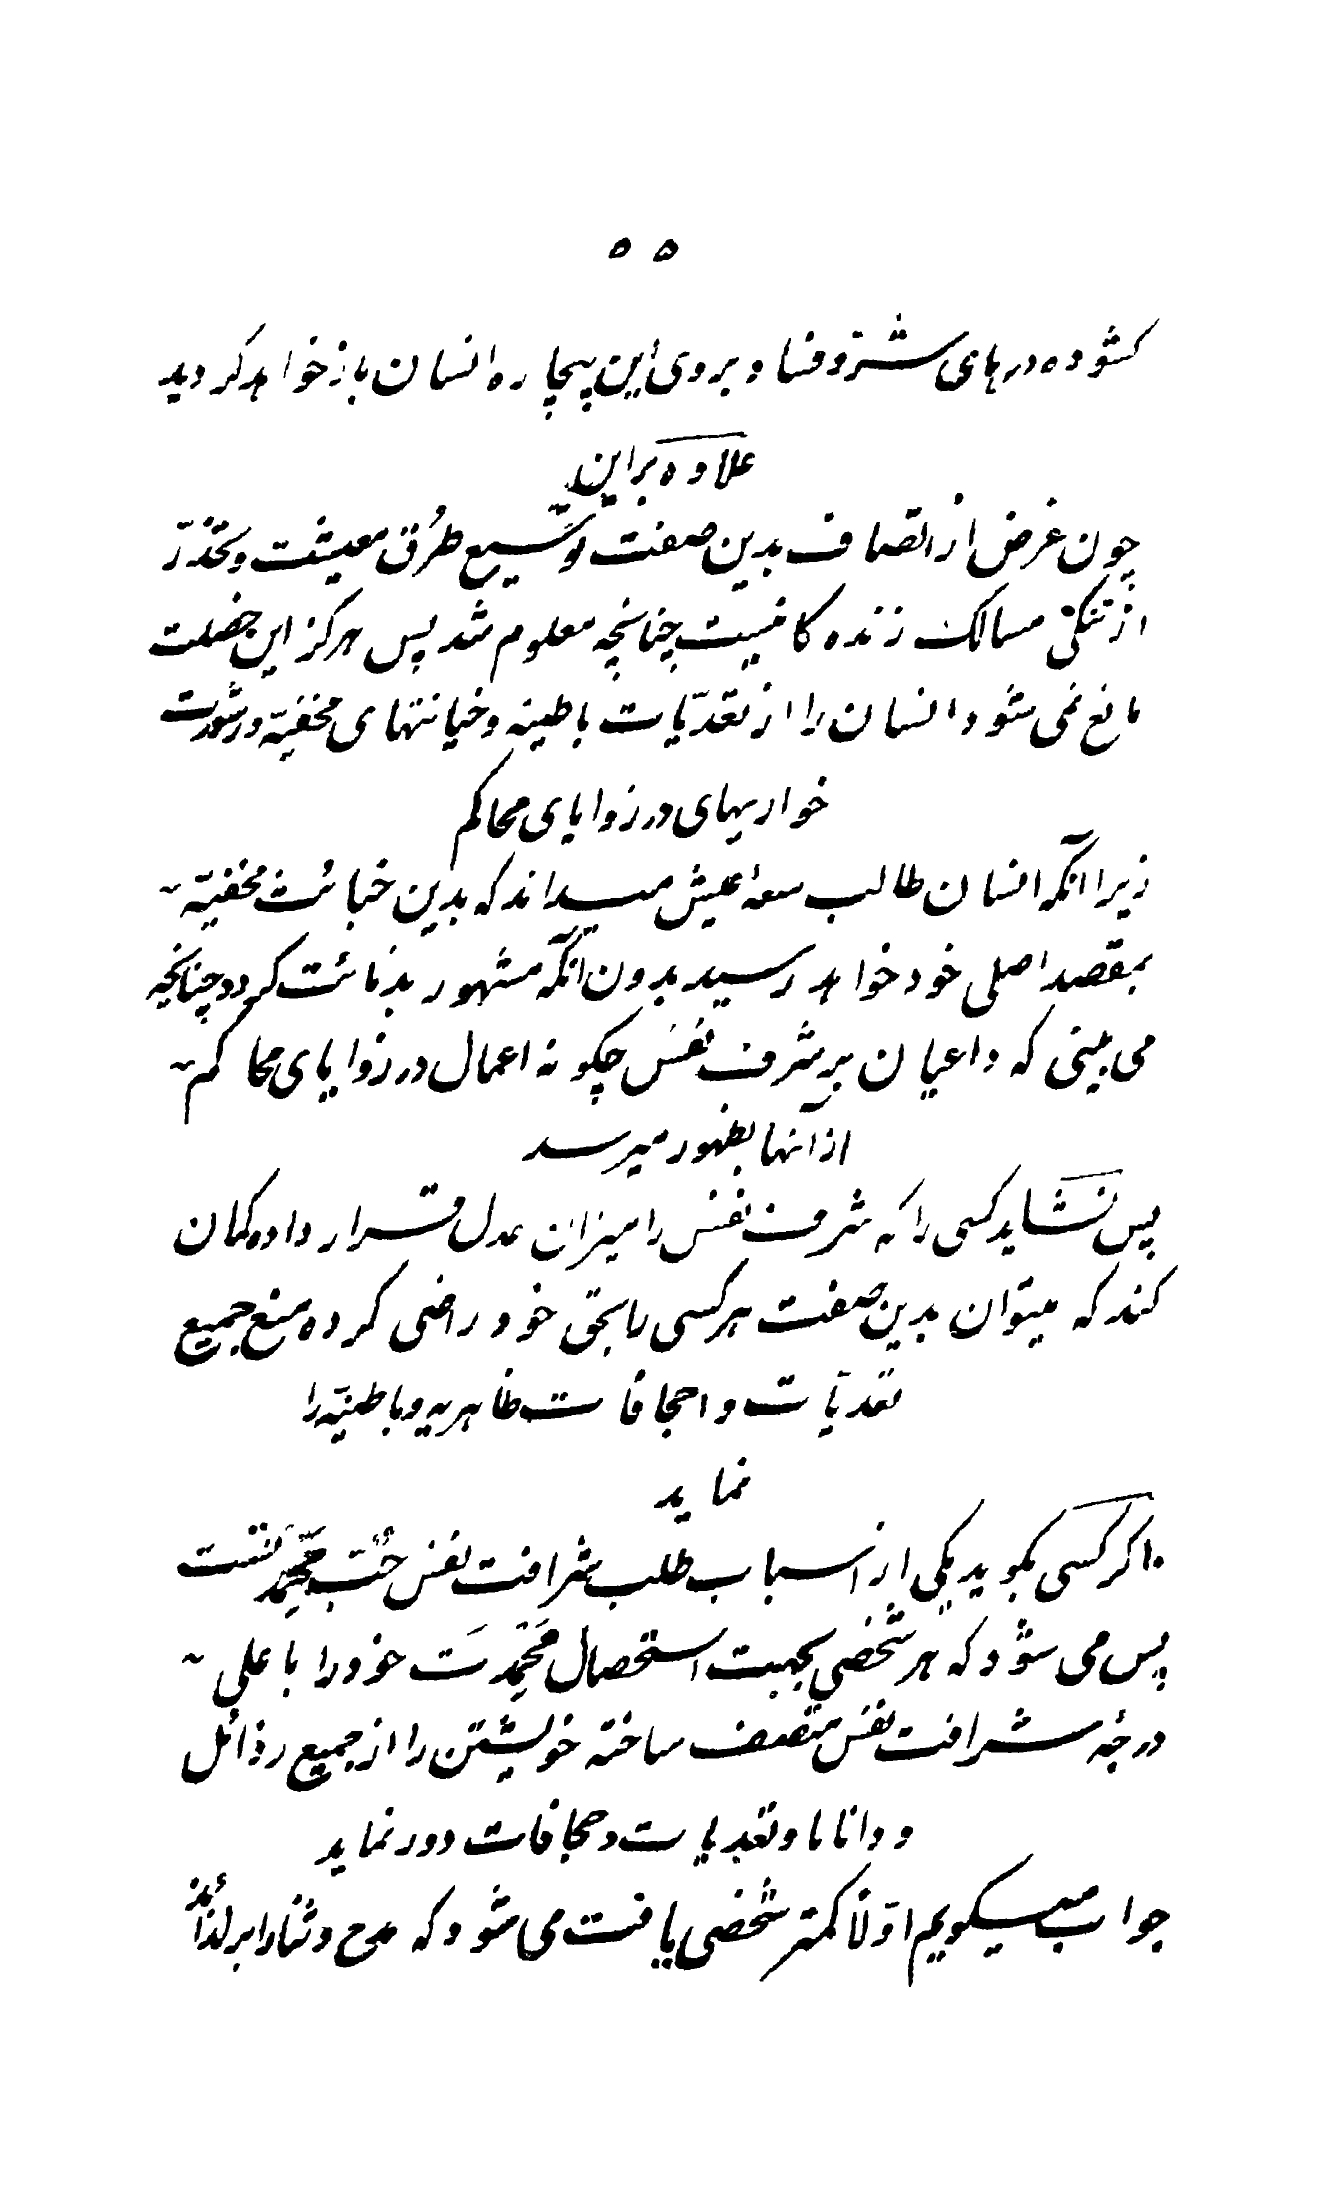 ۵۵
کشوده درهای شر و فساد بروی این بیچاره انسان باز خواهد کردید
علاوه براین
چون غرض از اتصاف بدین صفت توسیع طُرق معیشت و تحذّر
از تنکی مسالک زنده کانیست چنانچه معلوم شد پس هرکز این خصلت
مانع نمی شود انسان را از تعدّیات باطینه و خیانتهای مخفیّه و رشوت
خواریهای در زوایای محاکم
زیرا آنکه انسان طالب سعهٔ عیش میداند که بدین خبائث مخفیّه
بمقصد اصلی خود خواهد رسید بدون آنکه مشهور بدنائت کردد چنانچه
می بینی که داعیان بر شرف نفس چکونه اعمال در زوایای محاکم
از آنها بظهور میرسد
پس نشاید کسی را که شرف نفس را میزان عدل قرار داده کمان
کند که میتوان بدین صفت هر کسی را بحق خود راضی کرده منع جمیع
تعدیّات و احجافات ظاهریه و باطنیّه را
نماید
اکر کسی بکوید یکی از اسباب طلب شرافت نفس حُبّ مَحمِدتست
پس می شود که هر شخصی بجهت استحصال مَحمِدَت خود را با علی
درجهٔ شرافت نفس متصف ساخته خویشتن را از جمیع رذائل
و دانایا و تعدیات و حجافات دور نماید
جواب میکویم اوّلاً کمتر شخصی یافت می شود که مدح و ثنا را بر لذائذ